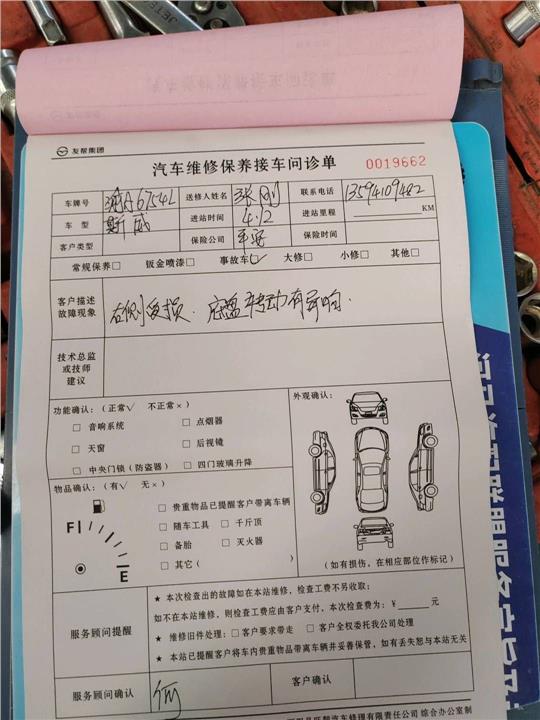 友帮集团
汽车维修保养接车问诊单 0019662
车牌号 送修人姓名 张刚 联系电话 13594109482
车型 斯威 进站时间 4.12 进站里程 KM
客户类型 保险公司 平安 保险时间
常规保养□ 钣金喷漆□ 事故车☑ 大修□ 小修□ 其他□
客户描述
故障现象 右侧受损. 底盘转动有异响.
技术总监
或技师
建议
功能确认:(正常√ 不正常×) 外观确认:
□ 音响系统 □ 点烟器
□ 天窗 □ 后视镜
□ 中央门锁(防盗器) □ 四门玻璃升降
物品确认:(有√ 无×)
□ 贵重物品已提醒客户带离车辆
F □ 随车工具 □ 千斤顶
□ 备胎 □ 灭火器
E □ 其它( ) (如有损伤,在相应部位作标记)
服务顾问提醒
★ 本次检查出的故障如在本站维修,检查工费不另收取;
如不在本站维修,则检查工费应由客户支付,本次检查费为:¥ 元
★ 维修旧件处理:□ 客户要求带走 □ 客户全权委托我公司处理
★ 本站已提醒客户将车内贵重物品带离车辆并妥善保管,如有丢失恕与本站无关
服务顾问确认 客户确认
汽车修理有限责任公司 综合办公室制